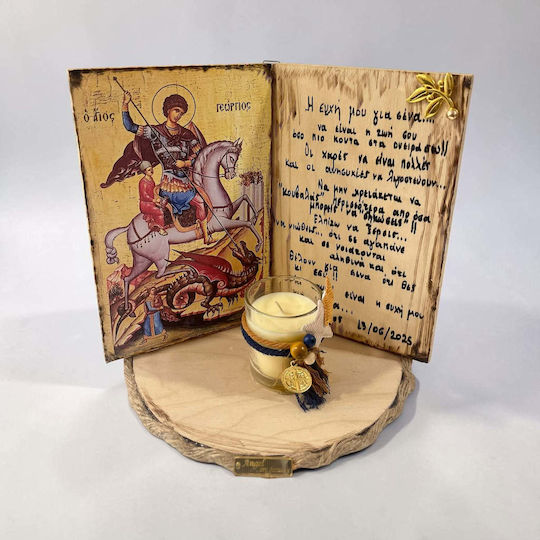 Ο ΑΓΙΟΣ
ΓΕΩΡΓΙΟΣ
Η ευχή μου για σένα...
να είναι η ζωή σου
όσο πιο κοντά στα όνειρά σου!!
Οι χαρές να είναι πολλές
και οι ανησυχίες να λιγοστεύουν...
Να μην χρειάζεται να
"κουβαλάς" περισσότερα από όσα
μπορείς να "σηκώσεις"!!
Ελπίζω να ξέρεις...
να νιώθεις... ότι σε αγαπάνε
και σε νοιάζονται
αληθινά και, ότι
θέλουν για σένα ότι θες
κι εσύ!!
είναι η ευχή μου
13/06/2025
Angel